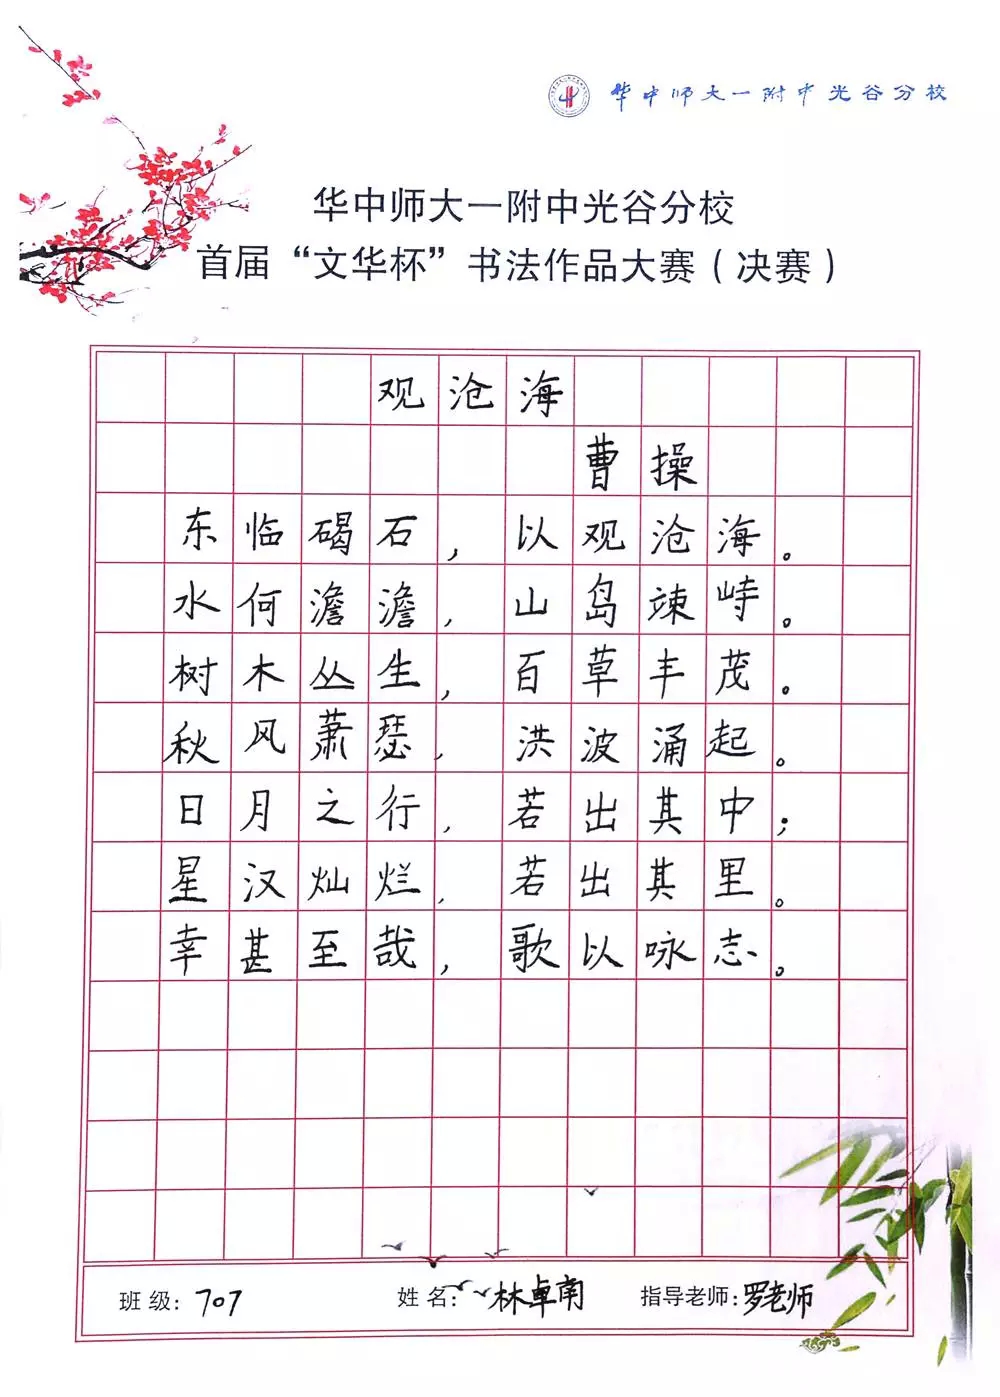 华中师大一附中光谷分校
华中师大一附中光谷分校
首届“文华杯”书法作品大赛(决赛)
观沧海
曹操
东临碣石,以观沧海。
水何澹澹,山岛竦峙。
树木丛生,百草丰茂。
秋风萧瑟,洪波涌起。
日月之行,若出其中;
星汉灿烂,若出其里。
幸甚至哉,歌以咏志。
班级:707 姓名:林卓南 指导老师:罗老师